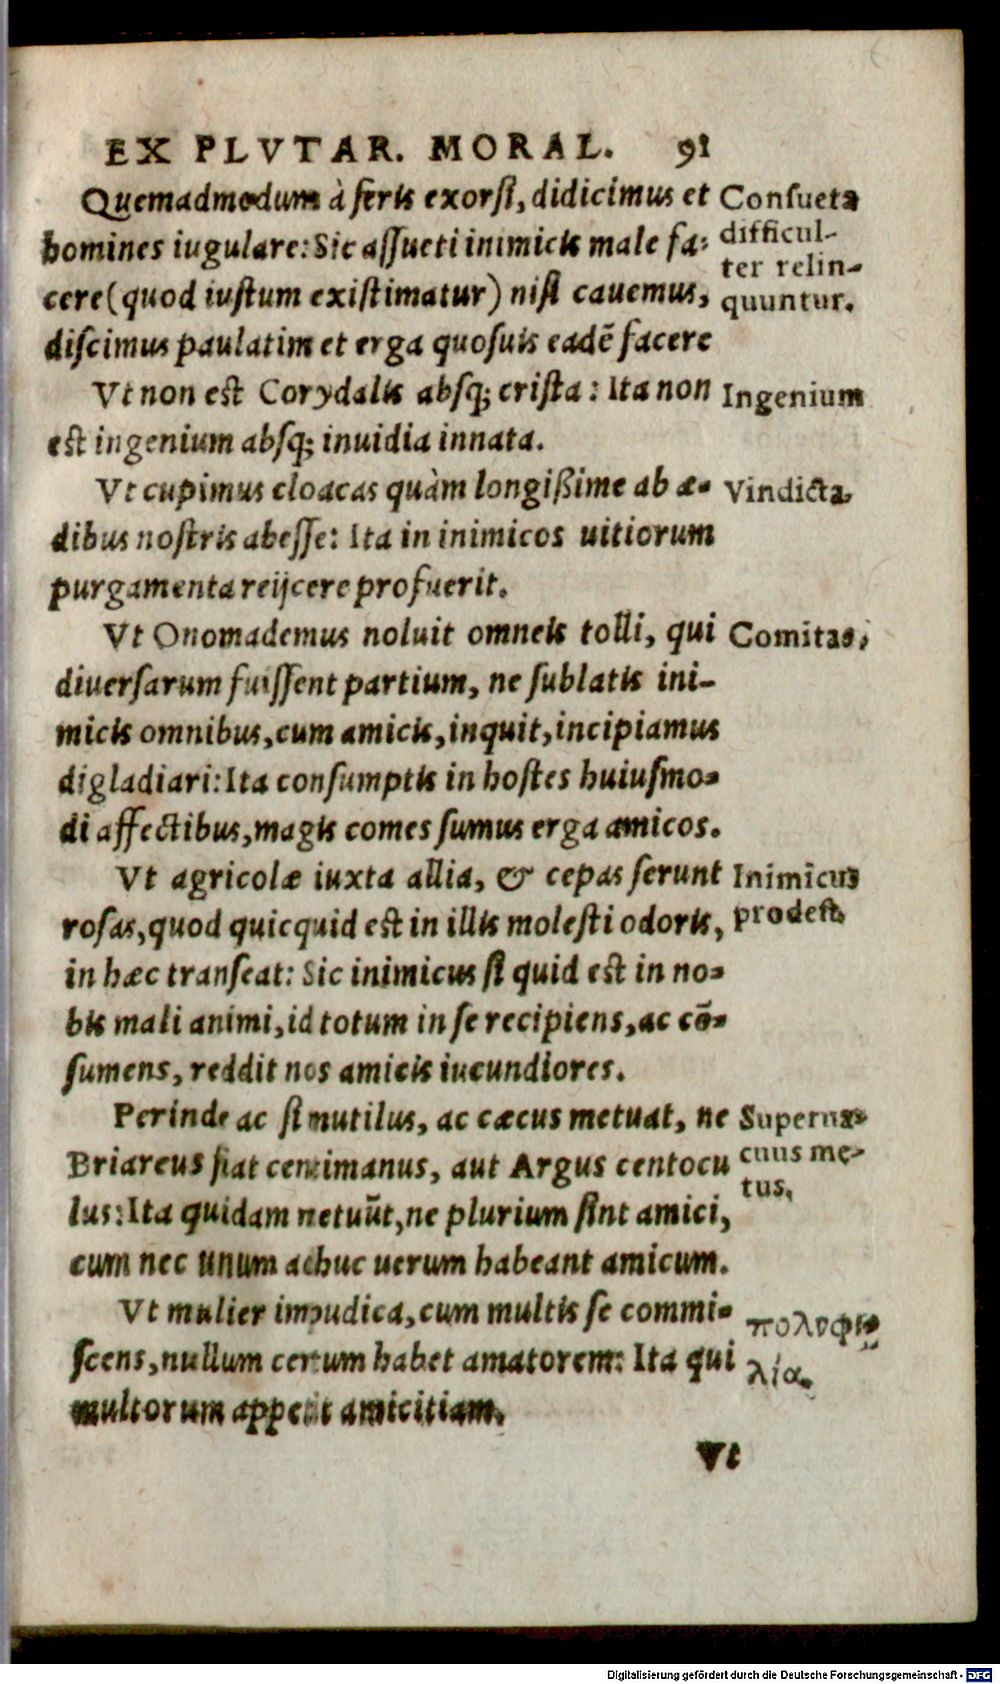 EX PLVTAR. MORAL. 91
Quemadmodum à feris exorsi, didicimus et
homines iugulare: Sic assueti inimicis male fa⸗
cere (quod iustum existimatur) nisi cauemus,
discimus paulatim et erga quosuis eadẽ facere
Consueta
difficul-
ter relin-
quuntur.
Vt non est Corydalis absq; crista: Ita non
est ingenium absq; inuidia innata.
Ingenium
Vt cupimus cloacas quàm longißime ab æ-
dibus nostris abesse: Ita in inimicos uitiorum
purgamenta reijcere profuerit.
Vindicta,
Vt Onomademus noluit omneis tolli, qui
diuersarum fuissent partium, ne sublatis ini-
micis omnibus, cum amicis, inquit, incipiamus
digladiari: Ita consumptis in hostes huiusmo-
di affectibus, magis comes sumus erga amicos.
Comitas,
Vt agricolæ iuxta allia, & cepas serunt
rosas, quod quicquid est in illis molesti odoris,
in hæc transeat: Sic inimicus si quid est in no-
bis mali animi, id totum in se recipiens, ac cõ-
sumens, reddit nos amicis iucundiores.
Inimicus
prodest,
Perinde ac si mutilus, ac cæcus metuat, ne
Briareus fiat centimanus, aut Argus centocu
lus: Ita quidam metuũt, ne plurium sint amici,
cum nec unum adhuc uerum habeant amicum.
Superua-
cuus me-
tus,
Vt mulier impudica, cum multis se commi-
scens, nullum certum habet amatorem: Ita qui
multorum appetit amicitiam.
πολυφι-
λία.
Vt
Digitalisierung gefördert durch die Deutsche Forschungsgemeinschaft - DFG